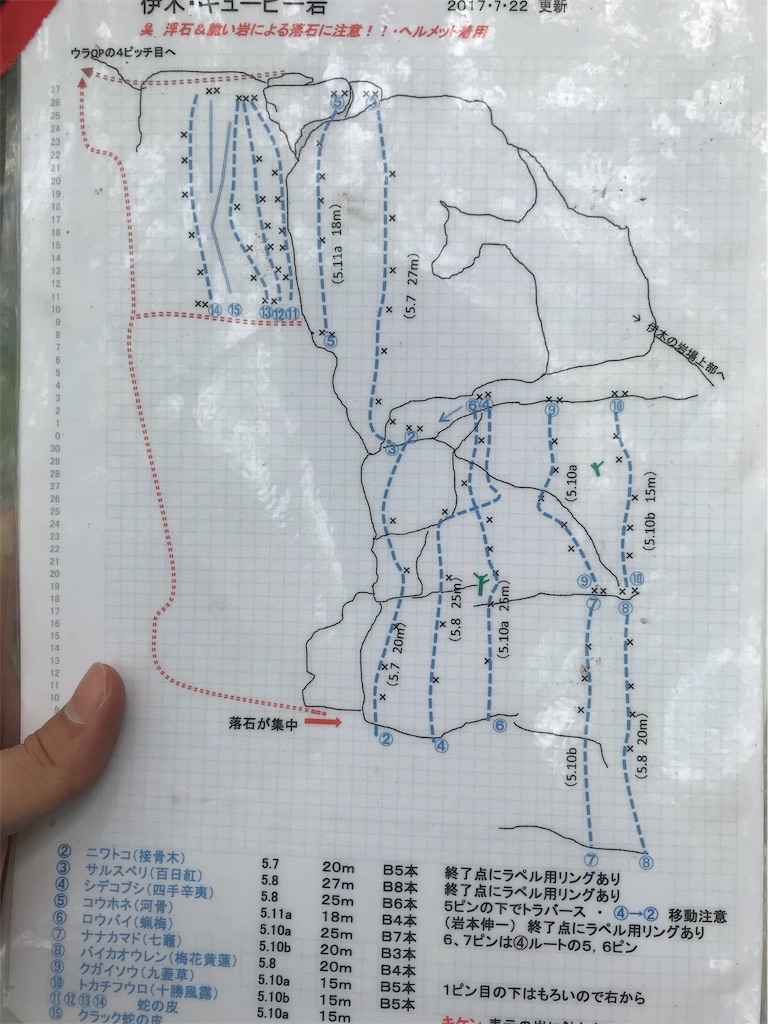 伊木・キューピー岩
2017・7・22 更新
浮石＆脆い岩による落石に注意！！・ヘルメット着用
ウラQPの4ピッチ目へ
27
26
25
24
23
22
21
20
19
18
17
16
15
14
13
12
11
10
9
8
7
6
5
4
3
2
1
0
30
29
28
27
26
25
24
23
22
21
20
19
18
17
16
15
14
13
12
11
10
⑤ ③
(5.11a 18m)
(5.7 27m)
⑭ ⑮ ⑬⑫⑪
⑤
伊木の岩場上部へ
⑥④ ⑨ ⑩
③ ②
(5.10a
(5.10b 15m)
⑨ ⑩
⑦ ⑧
(5.7 20m)
(5.8 25m)
(5.10a 25m)
落石が集中
② ④ ⑥
(5.10b
(5.8 20m)
⑦ ⑧
② ニワトコ（接骨木） 5.7 20m B5本 終了点にラペル用リングあり
③ サルスベリ（百日紅） 5.8 27m B8本 終了点にラペル用リングあり
④ シデコブシ（四手辛夷） 5.8 25m B6本 5ピンの下でトラバース ・ ④→② 移動注意
⑤ コウホネ（河骨） 5.11a 18m B4本 （岩本伸一） 終了点にラペル用リングあり
⑥ ロウバイ（蝋梅） 5.10a 25m B7本 6、7ピンは④ルートの5，6ピン
⑦ ナナカマド（七竈） 5.10b 20m B3本
⑧ バイカオウレン（梅花黄蓮） 5.8 20m B4本
⑨ クガイソウ（九蓋草） 5.10a 15m B5本
⑩ トカチフウロ（十勝風露） 5.10b 15m B5本 1ピン目の下はもろいので右から
⑪⑫⑬⑭ 蛇の皮 5.10a 15m
⑮ クラック蛇の皮
キケン